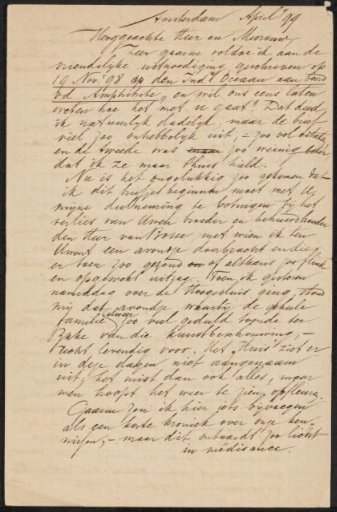 Amsterdam April '99
Hooggeachte Heer en Mevrouw,
Zeer gaarne voldoe ik aan de
vriendelijke uitnoodiging geschreven op
19 Nov. '98 den Ind. Oceaan aan boord
v.d. Amphitrite, en wil ons eens laten
weten hoe het met u gaat! Dat deed
ik natuurlijk dadelijk, maar de brief
viel zoo
en de tweede was zoo weinig beter
dat ik ze maar thuis hield.
Nu is het ongelukkig zoo gekomen dat
ik dit briefje beginnen moet met de
mijne deelneming te betuigen bij het
verlies van Uwen broeder en
den Heer van Bosse met wien ik ten
Uwent een avondje doorbracht en die
er toen zoo gezond en althans zoo flink
en opgewekt uitzag. Toen ik gisteren
namiddag over de Hoogesluis ging, stond
mij dat avondje waarbij de geheele
familie zoo veel geduld toonde ter
zake van die kunstbeschouwing, –
recht levendig voor. Het "Huis" ziet er
in deze dagen niet aangenaam
uit, het mist dan ook alles, maar
men hoopt het weer te zien opfleuren.
Gaarne zou ik hier iets bijvoegen
als een korte kroniek over onze
– maar dit ontaardt zoo licht
in médisance.